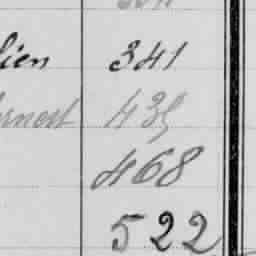 lien 341
ernest 435
468
522